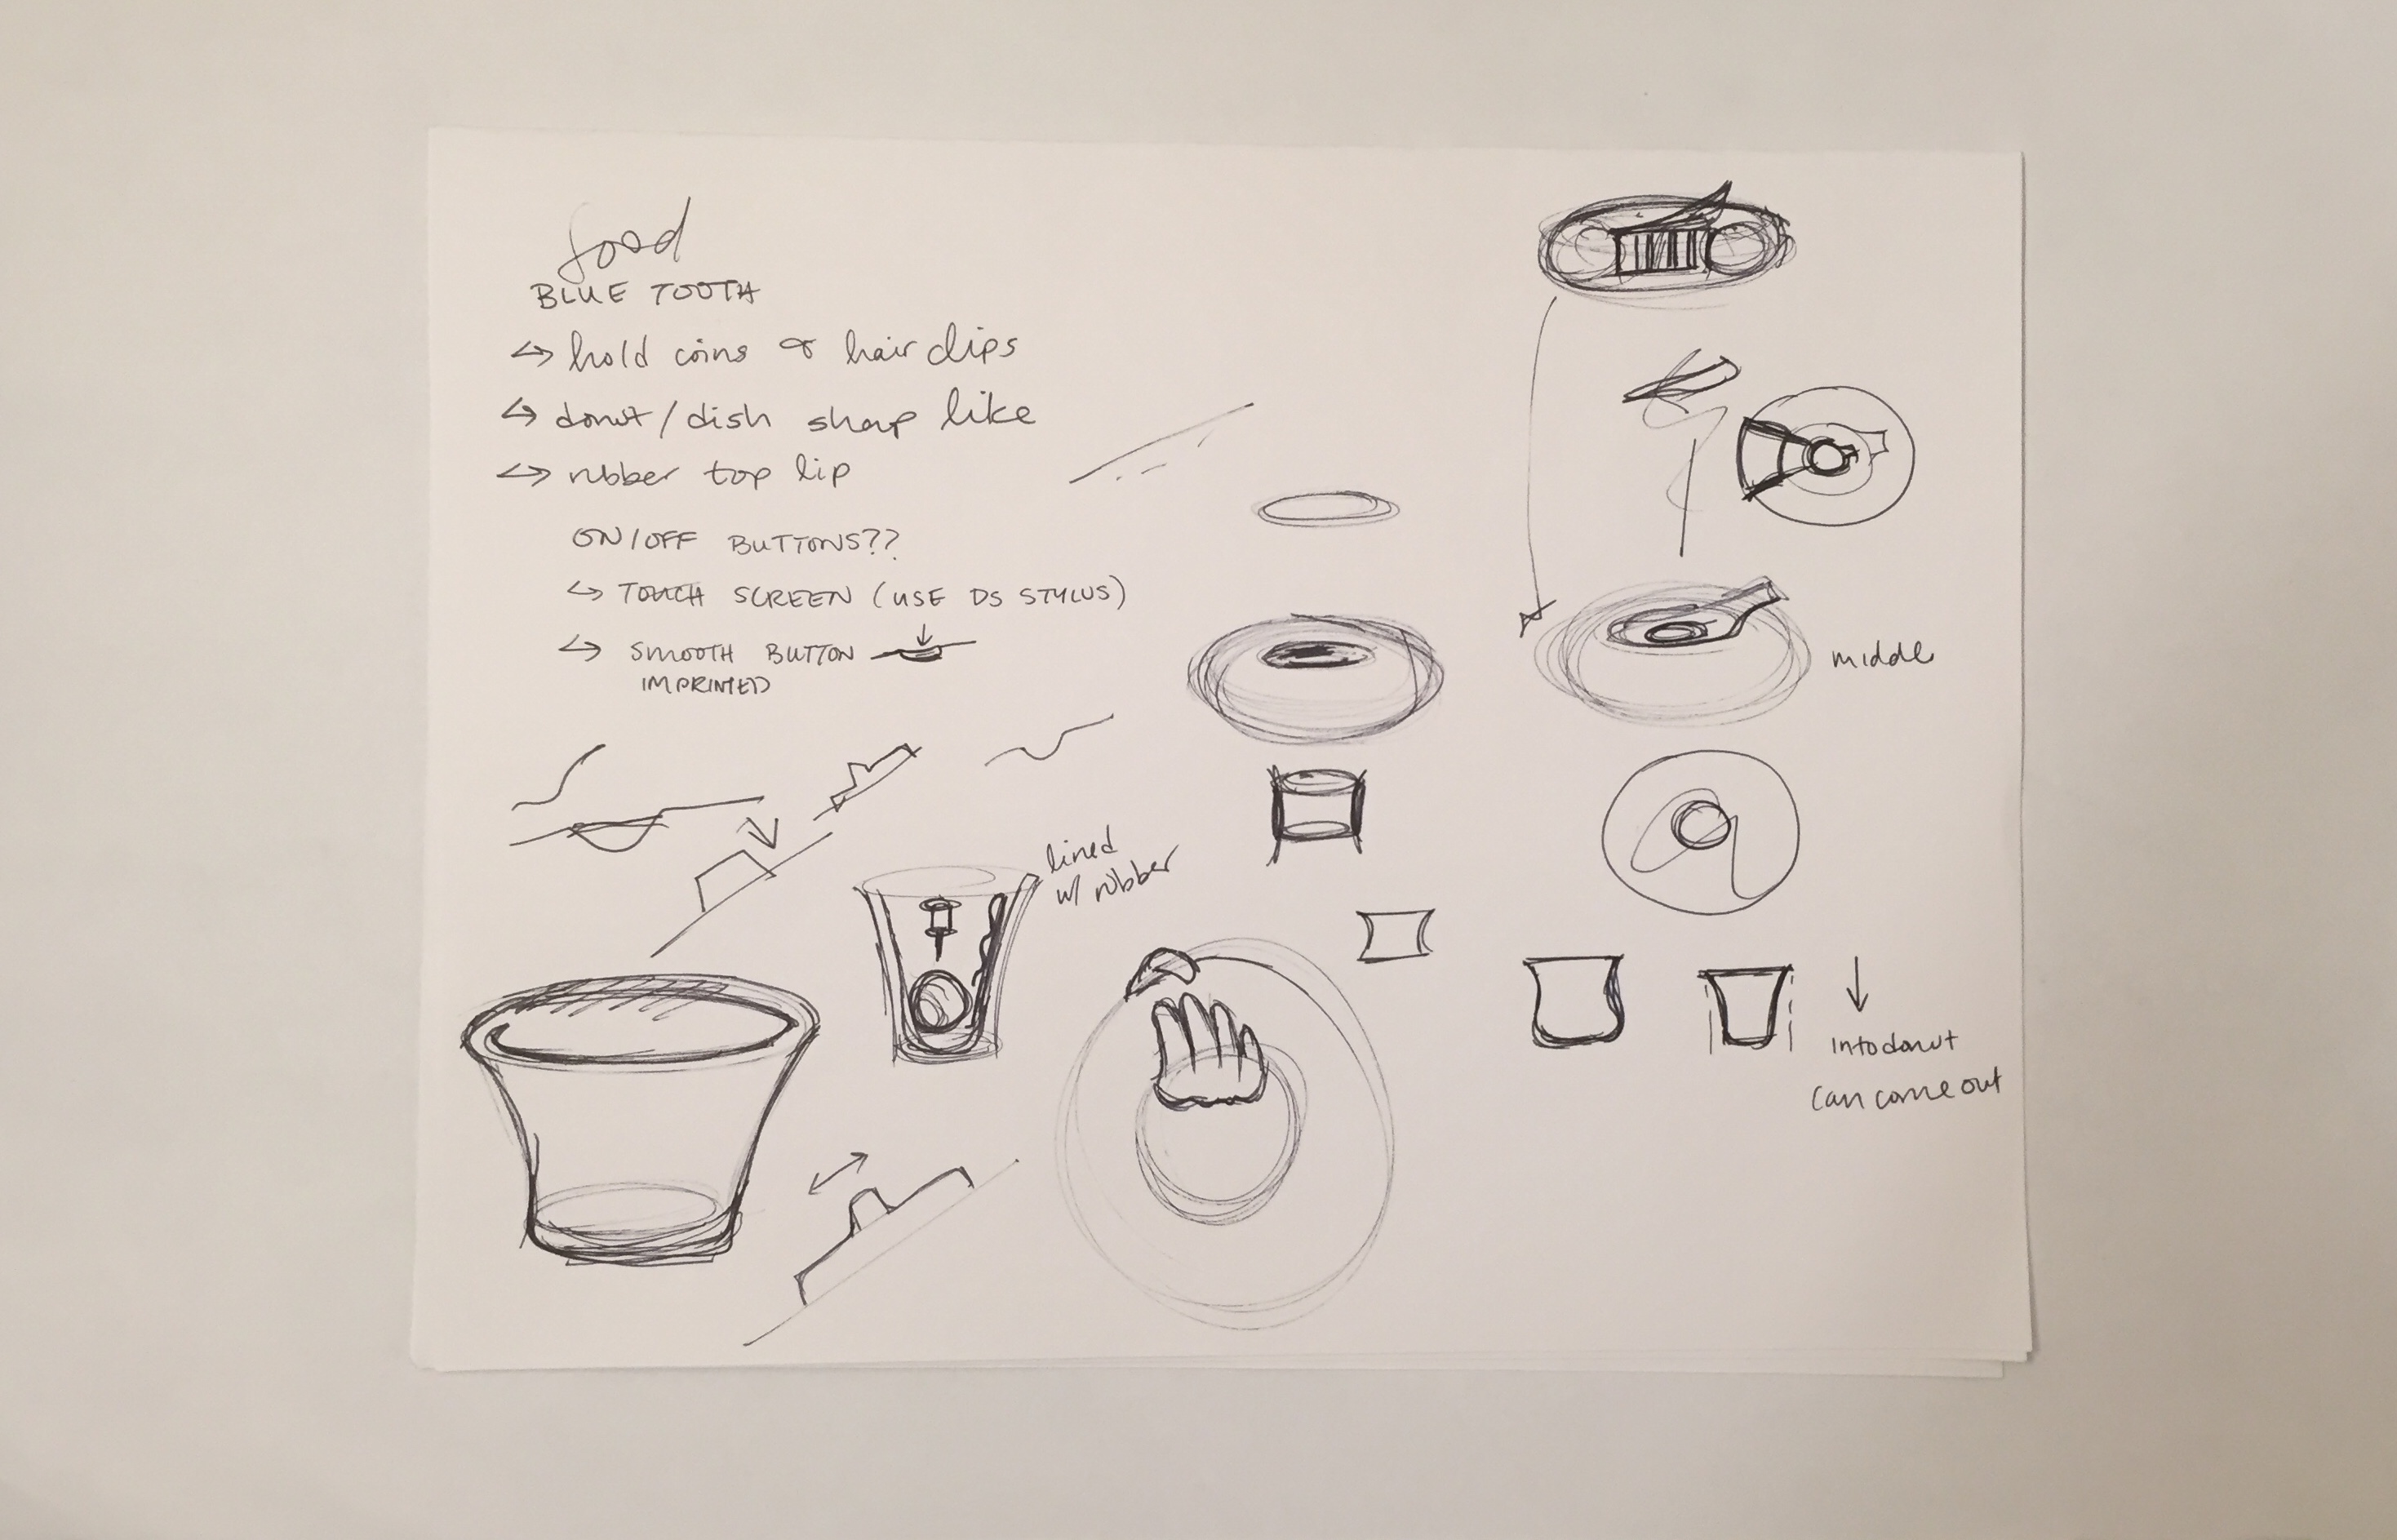 food
BLUE TOOTH
↪ hold coins & hair clips
↪ donut/dish shap like
↪ rubber top lip
ON/OFF BUTTONS??
↪ TOUCH SCREEN (USE DS STYLUS)
↪ SMOOTH BUTTON
IMPRINTED
middle
lined
w/ rubber
into donut
can come out